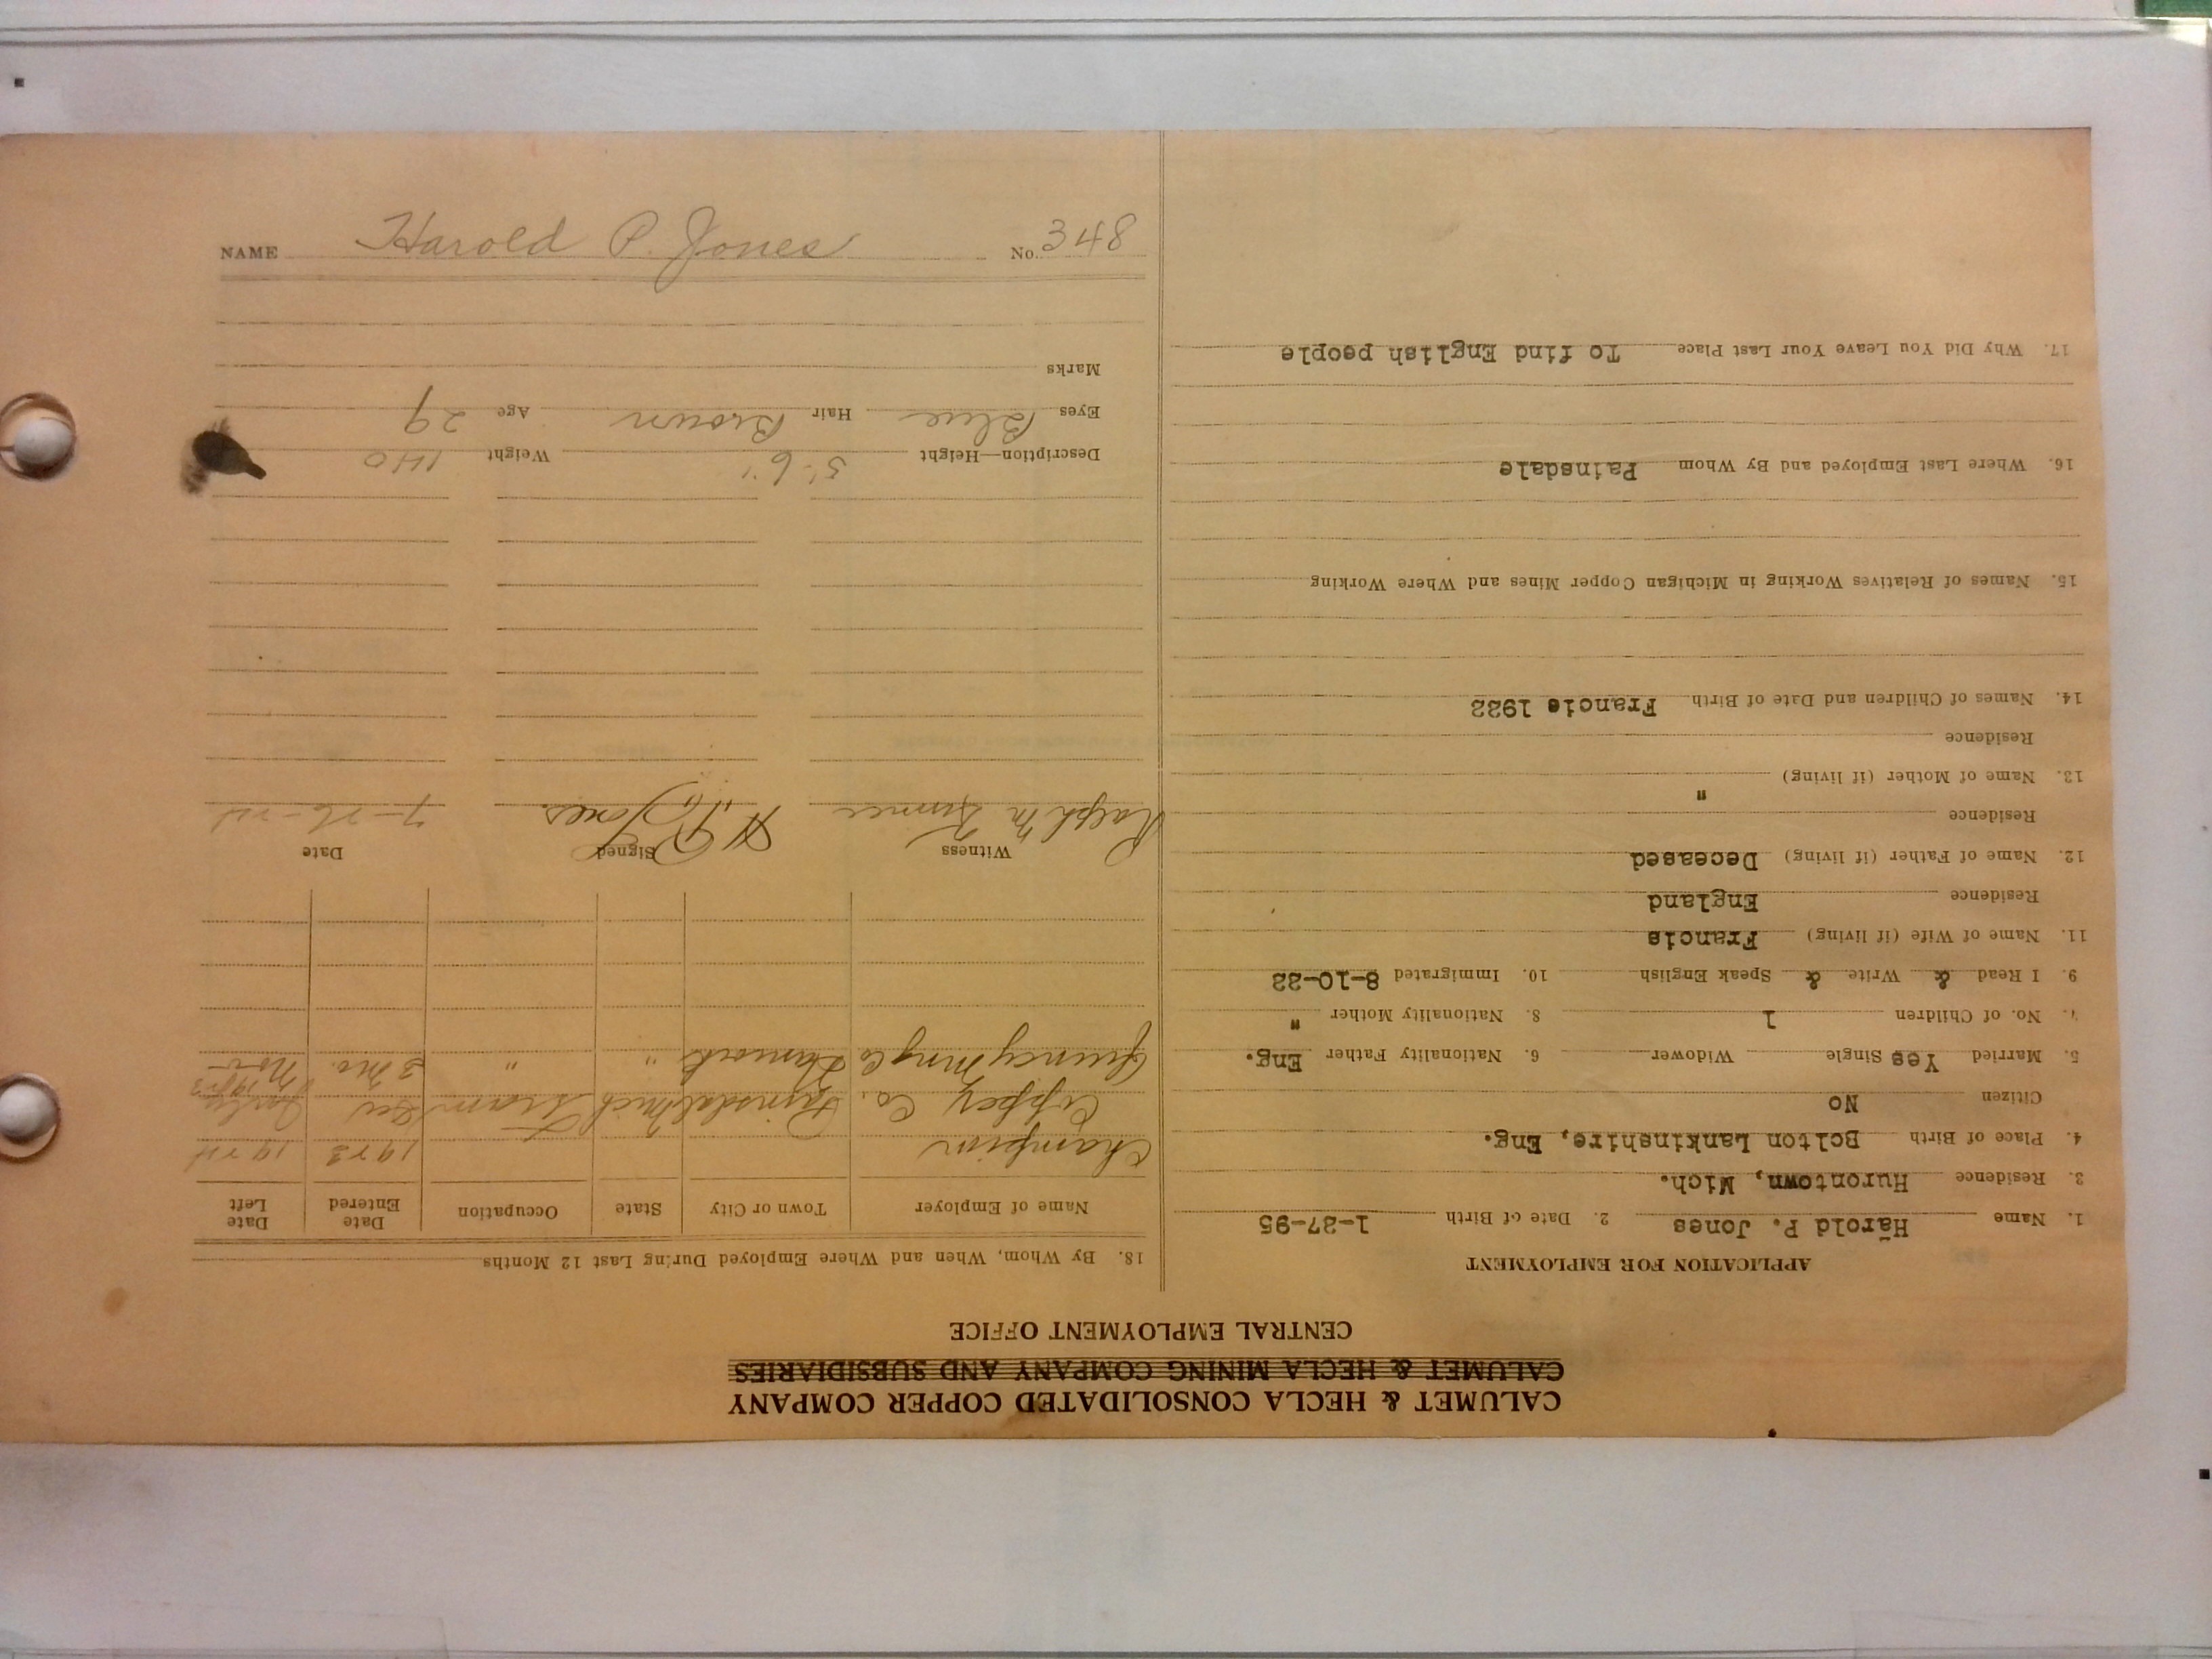 CALUMET & HECLA CONSOLIDATED COPPER COMPANY
CALUMET & HECLA MINING COMPANY AND SUBSIDIARIES
CENTRAL EMPLOYMENT OFFICE
APPLICATION FOR EMPLOYMENT
1. Name Harold P. Jones 2. Date of Birth 1-27-95
3. Residence Hurontown, Mich.
4. Place of Birth Bolton Lankinshire, Eng.
Citizen No
5. Married Yes Single Widower 6. Nationality Father Eng.
7. No. of Children 1 8. Nationality Mother "
9. I Read & Write & Speak English 10. Immigrated 8-10-22
11. Name of Wife (if living) Francis
Residence England
12. Name of Father (if living) Deceased
Residence
13. Name of Mother (if living) "
Residence
14. Names of Children and Date of Birth Francis 1922
15. Names of Relatives Working in Michigan Copper Mines and Where Working
16. Where Last Employed and By Whom Painsdale
17. Why Did You Leave Your Last Place To find English people
18. By Whom, When and Where Employed During Last 12 Months
Name of Employer Town or City State Occupation Date Entered Date Left
Champion 1923 1924
Copper Co. Painsdale Mich Tram
Quincy Mng Co Hancock " " 3 Mo.
Witness Signed Date
Ralph M H. P. Jones
Description—Height 5'-6" Weight 140
Eyes Blue Hair Brown Age 29
Marks
NAME Harold P. Jones No. 348